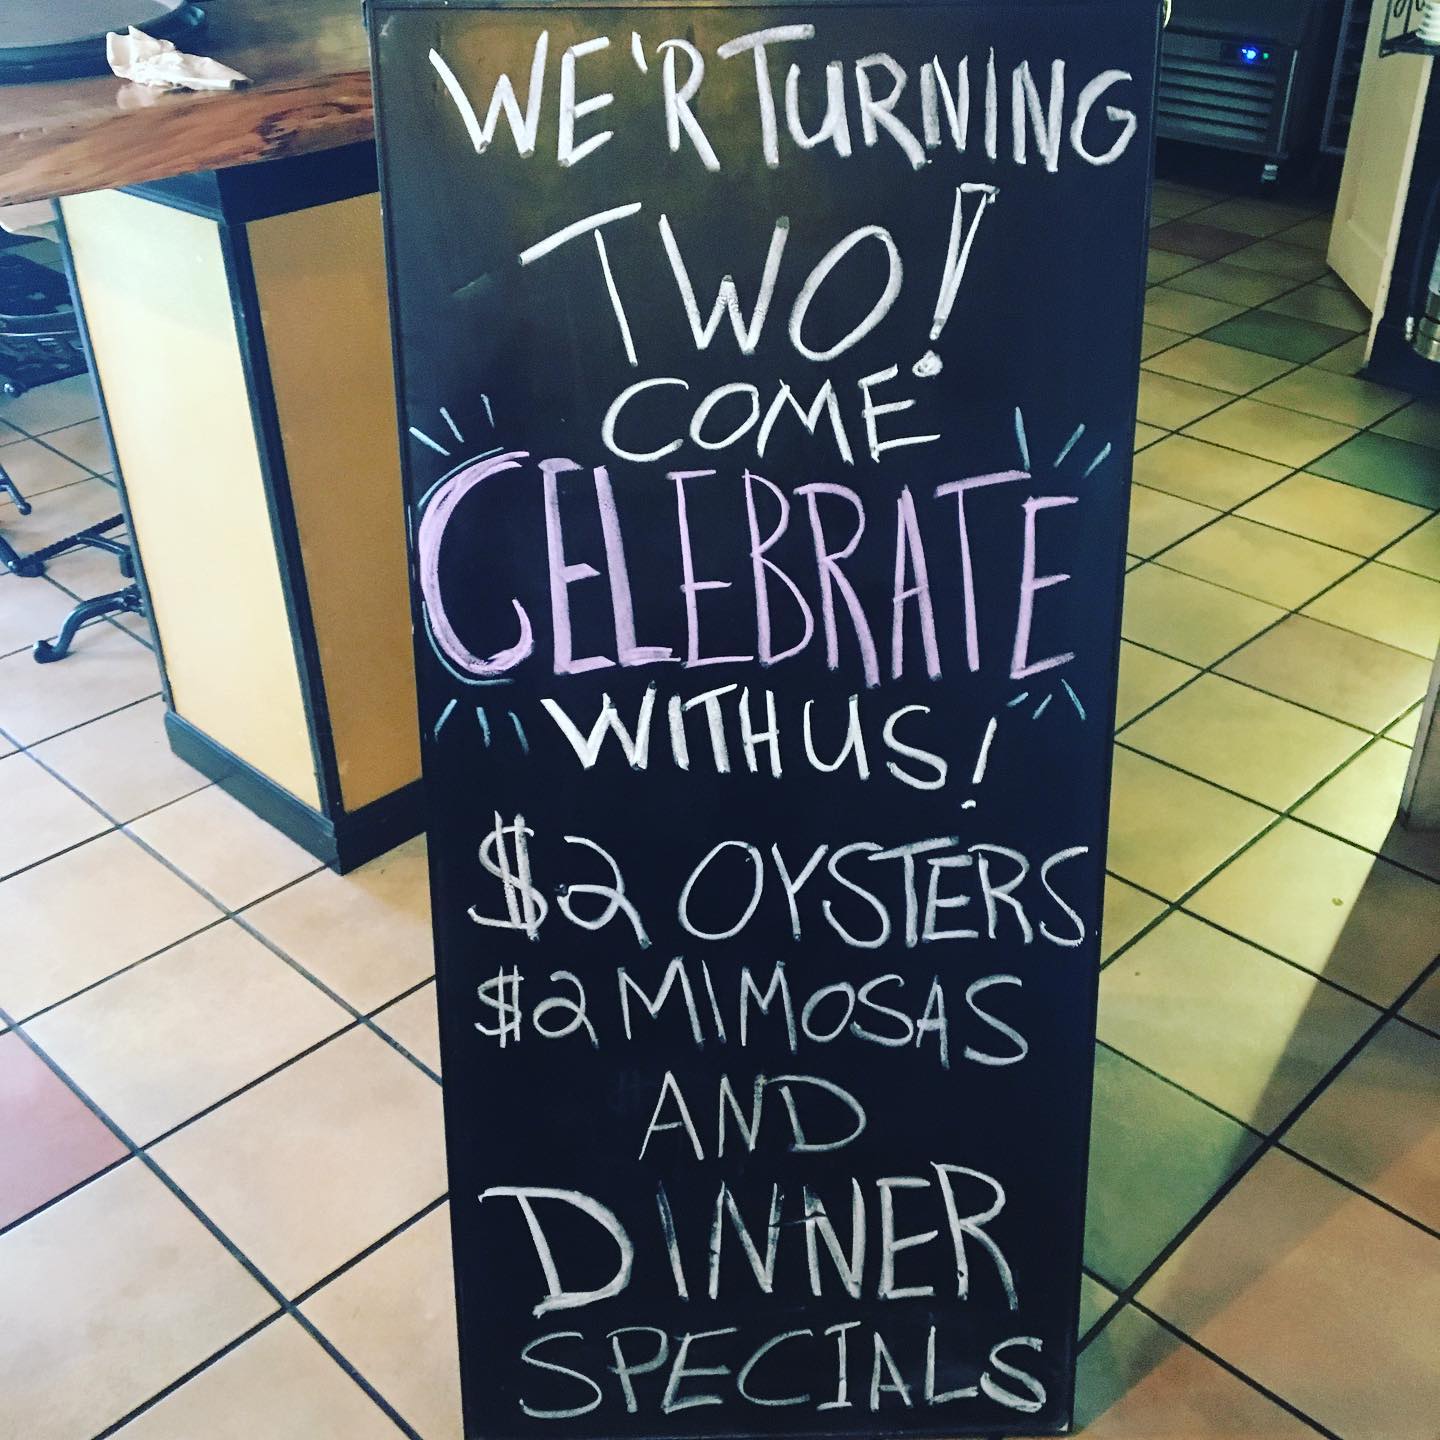 WE'R TURNING
TWO!
COME
CELEBRATE
WITH US!
$2 OYSTERS
$2 MIMOSAS
AND
DINNER
SPECIALS